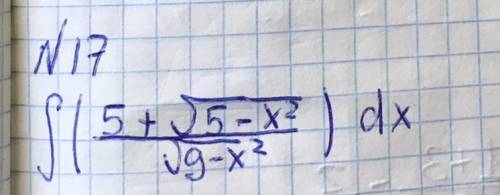 N17
∫( (5 + √(5 - x²)) / √(9 - x²) ) dx